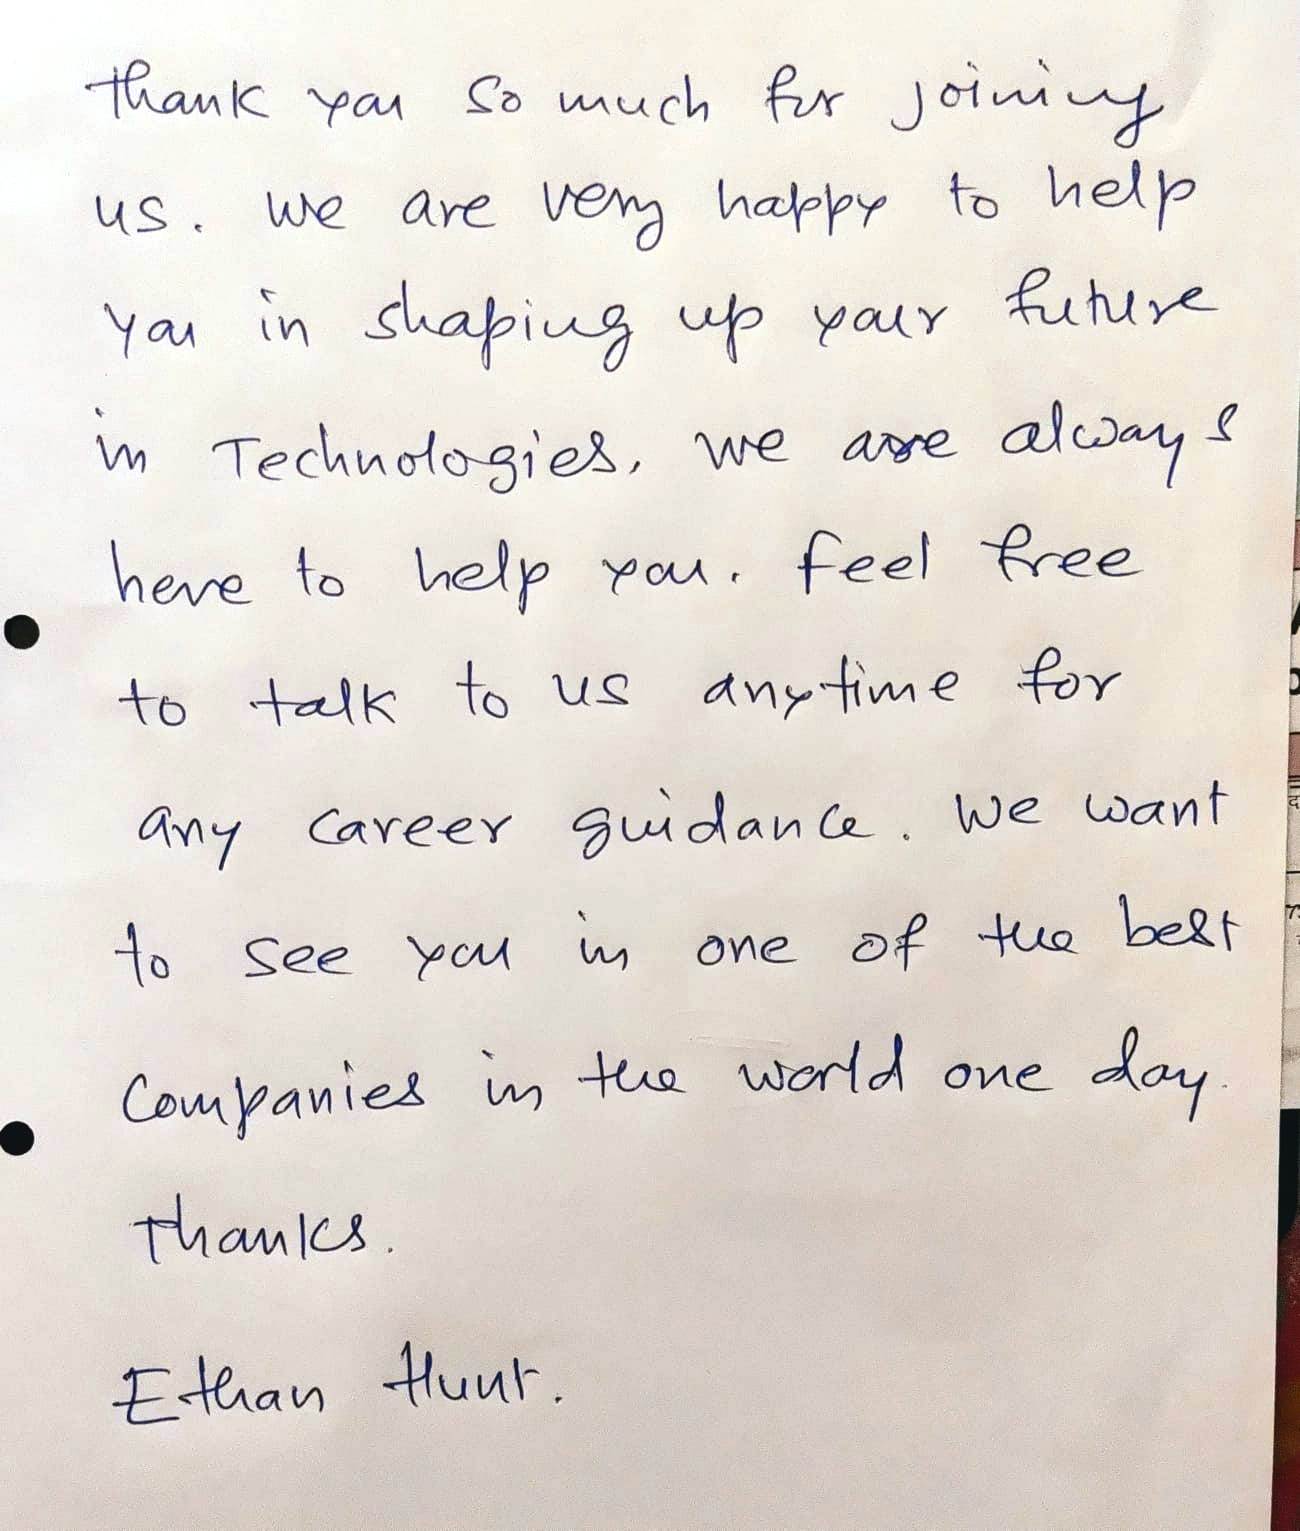 thank you so much for joining
us. we are very happy to help
you in shaping up your future
in Technologies. we are always
here to help you. feel free
to talk to us anytime for
any career guidance. We want
to see you in one of the best
Companies in the world one day.
Thanks.
Ethan Hunt.